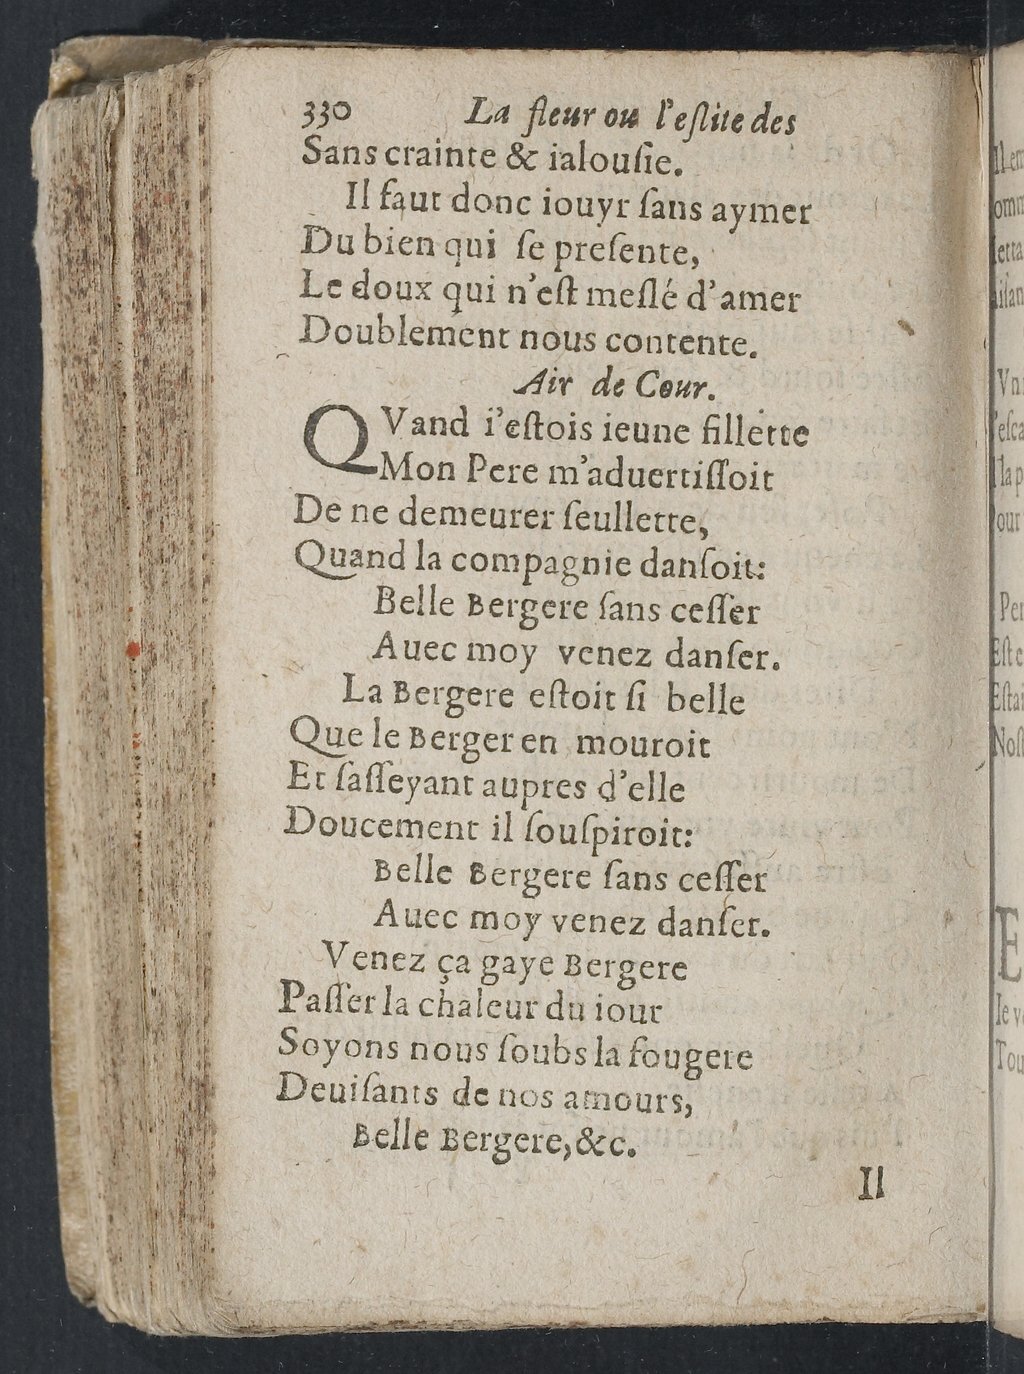 330 La fleur ou l'eſlite des
Sans crainte & ialouſie.
Il faut donc iouyr ſans aymer
Du bien qui ſe preſente,
Le doux qui n'eſt meſlé d'amer
Doublement nous contente.
Air de Cour.
QVand i'eſtois ieune fillette
Mon Pere m'aduertiſſoit
De ne demeurer ſeullette,
Quand la compagnie danſoit:
Belle Bergere ſans ceſſer
Auec moy venez danſer.
La Bergere eſtoit ſi belle
Que le Berger en mouroit
Et ſaſſeyant aupres d'elle
Doucement il ſouſpiroit:
Belle Bergere ſans ceſſer
Auec moy venez danſer.
Venez ça gaye Bergere
Paſſer la chaleur du iour
Soyons nous ſoubs la fougere
Deuiſants de nos amours,
Belle Bergere, &c.
Il